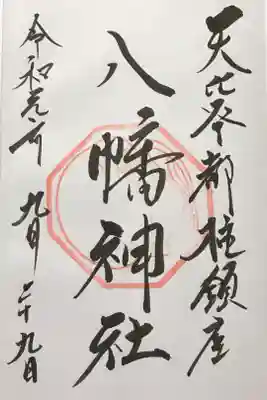 天比登都柱鎮座
八幡神社
令和元年九月二十九日